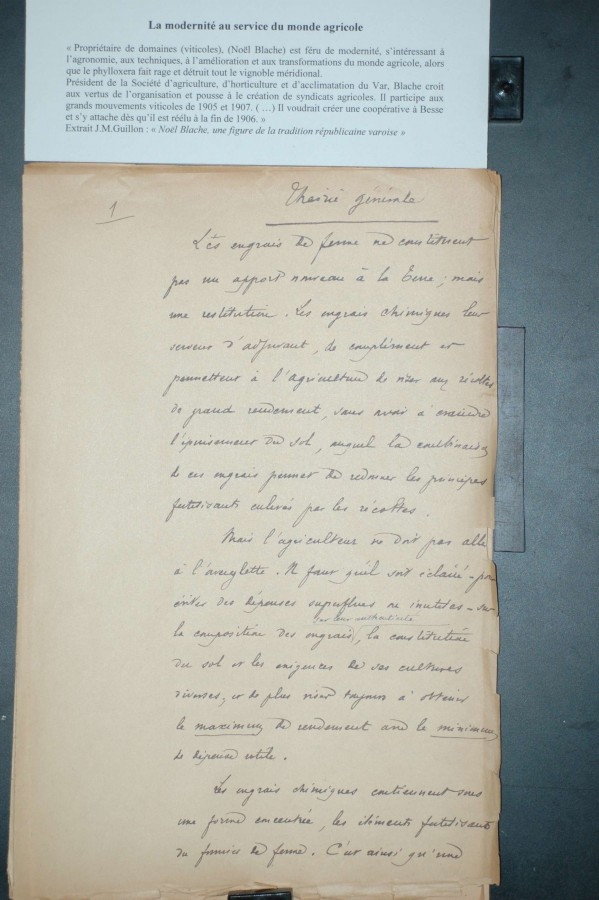 La modernité au service du monde agricole
« Propriétaire de domaines (viticoles), (Noël Blache) est féru de modernité, s'intéressant à
l'agronomie, aux techniques, à l'amélioration et aux transformations du monde agricole, alors
que le phylloxera fait rage et détruit tout le vignoble méridional.
Président de la Société d'agriculture, d'horticulture et d'acclimatation du Var, Blache croit
aux vertus de l'organisation et pousse à la création de syndicats agricoles. Il participe aux
grands mouvements viticoles de 1905 et 1907. ( …) Il voudrait créer une coopérative à Besse
et s'y attache dès qu'il est réélu à la fin de 1906. »
Extrait J.M.Guillon : « Noël Blache, une figure de la tradition républicaine varoise »
1
Théorie générale
Les engrais de ferme ne constituent
pas un apport nouveau à la Terre ; mais
une restitution. Les engrais chimiques leur
servent d'adjuvant, de complément et
permettent à l'agriculteur de viser aux récoltes
de grand rendement, sans avoir à craindre
l'épuisement du sol, auquel la combinaison
de ces engrais permet de redonner les principes
fertilisants enlevés par les récoltes.
Mais l'agriculteur ne doit pas aller
à l'aveuglette. Il faut qu'il soit éclairé - pour
éviter des dépenses superflues ou inutiles - sur
sur leur authenticité
la composition des engrais, la constitution
du sol et les exigences de ses cultures
diverses, et de plus viser toujours à obtenir
le maximum de rendement avec le minimum
de dépense utile.
Les engrais chimiques contiennent sous
une forme concentrée, les éléments fertilisants
du fumier de ferme. C'est ainsi qu'une